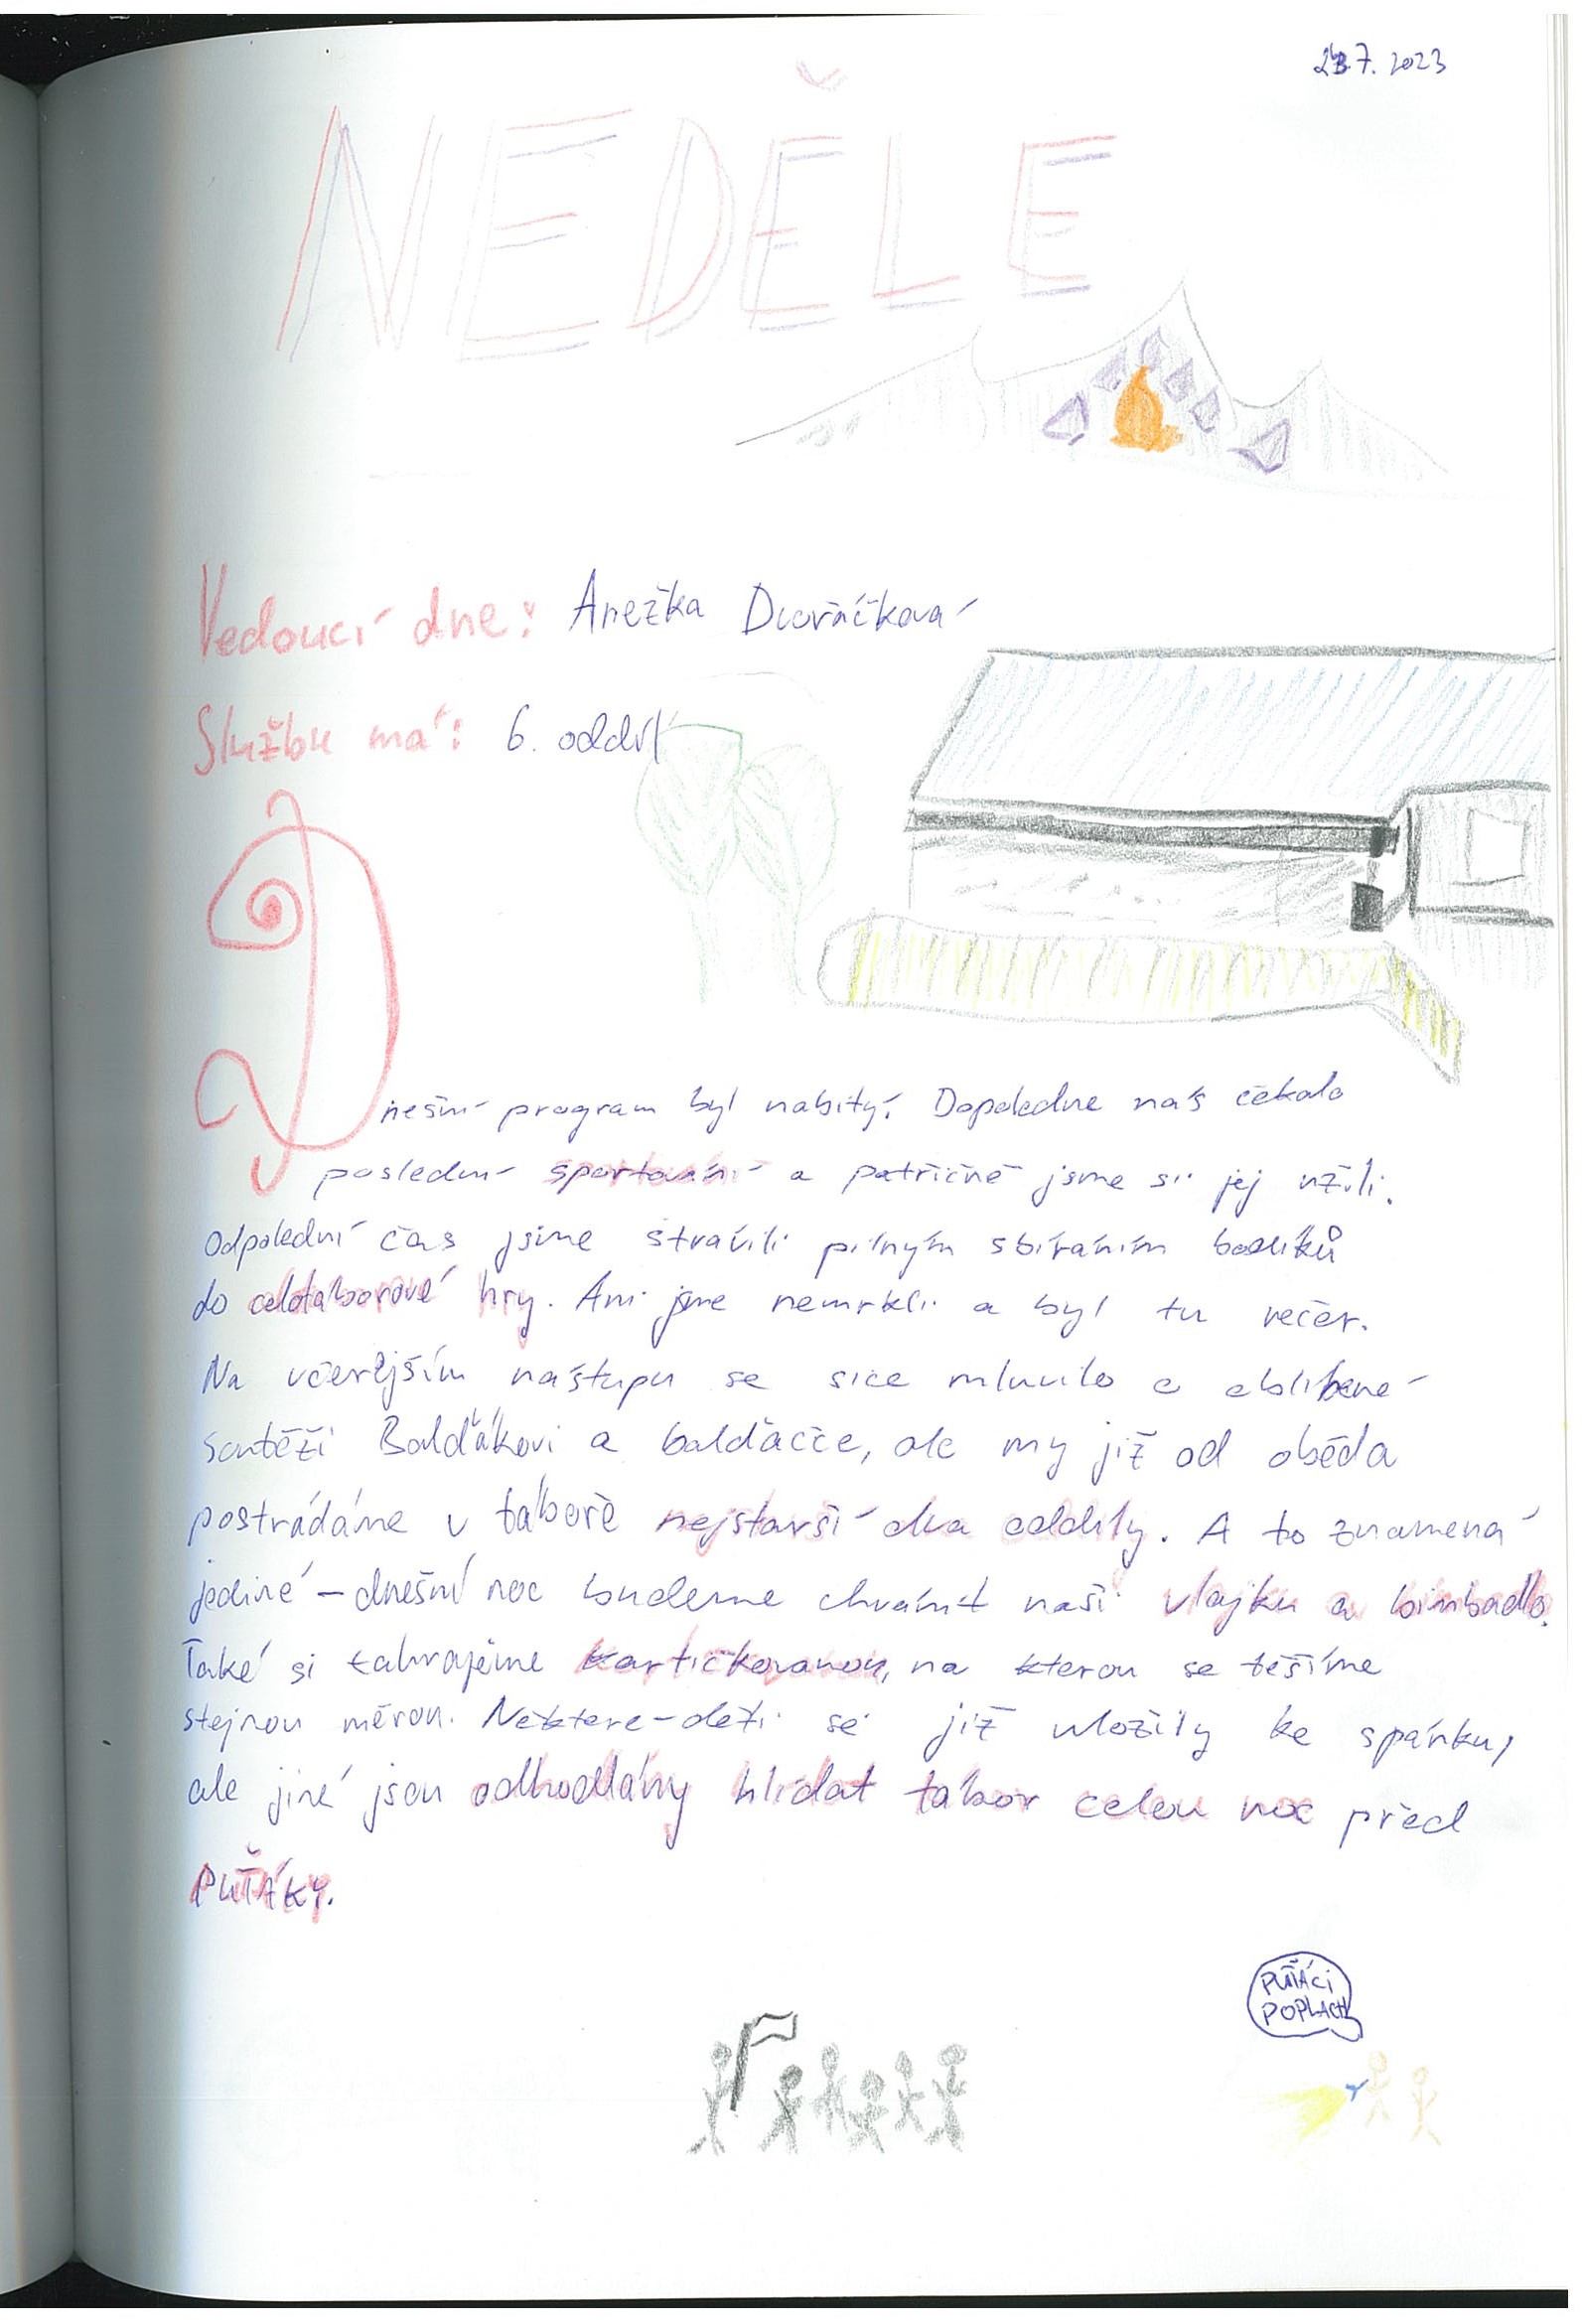 23.7. 2023
NEDĚLE
Vedoucí dne: Anežka Dvořáčková
Službu má: 6. oddíl
Dnešní program byl nabitý. Dopoledne nás čekalo
poslední sportování a patřičně jsme si jej užili.
Odpolední čas jsme strávili pilným sbíráním bodíků
do celotáborové hry. Ani jsme nemrkli a byl tu večer.
Na včerejším nástupu se sice mluvilo o oblíbené
soutěži Balďákovi a balďačce, ale my již od oběda
postrádáme v táboře nejstarší dva oddíly. A to znamená
jediné – dnešní noc budeme chránit naši vlajku a bimbadlo.
Také si zahrajeme kartičkovanou, na kterou se těšíme
stejnou měrou. Některé děti se již uložily ke spánku,
ale jiné jsou odhodlány hlídat tábor celou noc před
PUŤÁKY.
PUŤÁCI
POPLACH